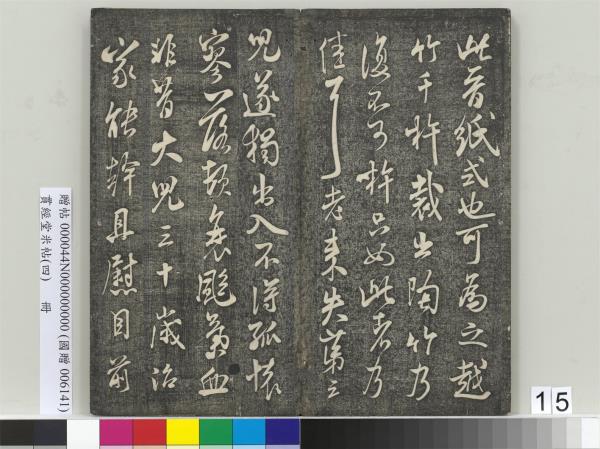 此晉紙式也可為之越
竹千杵裁出陶竹乃
復不可杵只如此者乃
佳耳老來失第三
兒遂獨出入不得孤懷
寥落頓衰颯氣血
非昔大兒三十歲治
家能幹且慰目前
贈帖 000044N000000000 (國贈 006141)
貫經堂米帖(四) 冊
15